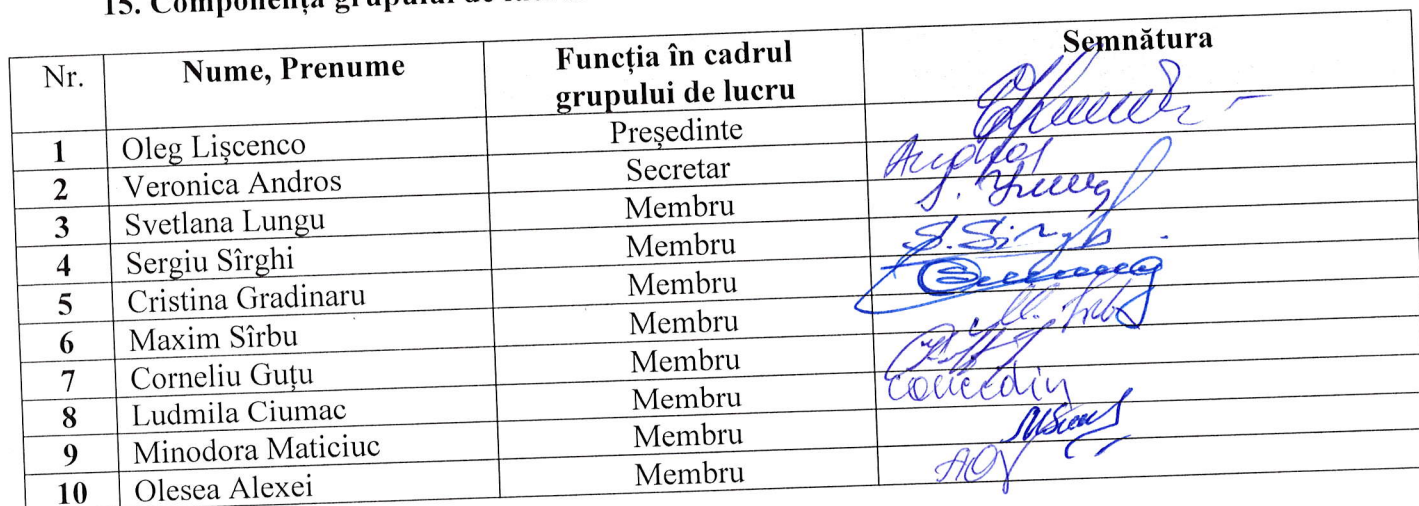 15. Componența grupului de
Nr. Nume, Prenume Funcția în cadrul grupului de lucru Semnătura
1 Oleg Lișcenco Președinte
2 Veronica Andros Secretar Andros
3 Svetlana Lungu Membru
4 Sergiu Sîrghi Membru
5 Cristina Gradinaru Membru
6 Maxim Sîrbu Membru
7 Corneliu Guțu Membru
8 Ludmila Ciumac Membru
9 Minodora Maticiuc Membru
10 Olesea Alexei Membru